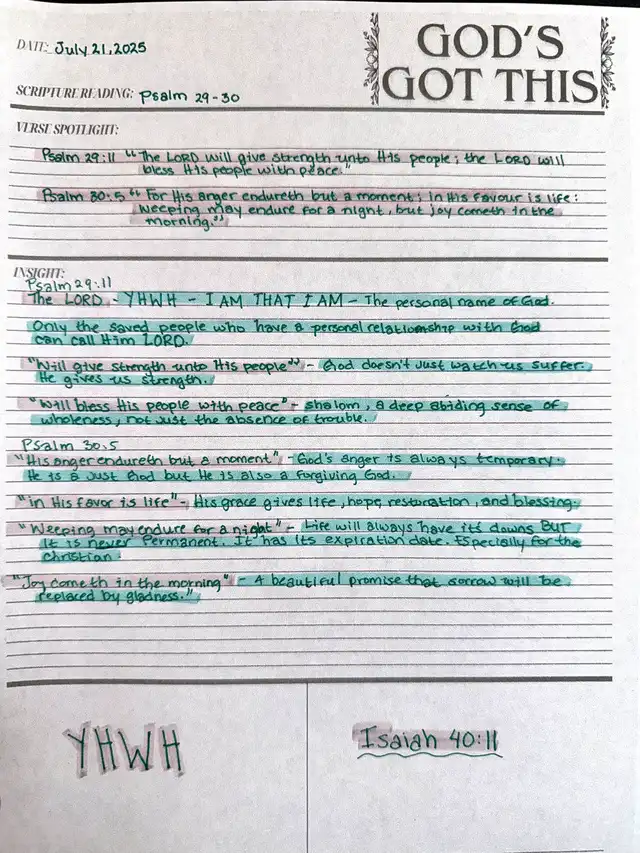 GOD'S
GOT THIS
DATE: July 21, 2025
SCRIPTURE READING: Psalm 29-30
VERSE SPOTLIGHT:
Psalm 29:11 "The LORD will give strength unto His people; the LORD will
bless His people with peace."
Psalm 30:5 "For His anger endureth but a moment; in His favour is life:
weeping may endure for a night, but joy cometh in the
morning."
INSIGHT:
Psalm 29:11
The LORD - YHWH - I AM THAT I AM - The personal name of God.
Only the saved people who have a personal relationship with God
can call Him LORD.
"Will give strength unto His people" - God doesn't just watch us suffer.
He gives us strength.
"Will bless His people with peace" - shalom, a deep abiding sense of
wholeness, not just the absence of trouble.
Psalm 30:5
"His anger endureth but a moment" - God's anger is always temporary.
He is a just God but He is also a forgiving God.
"in His favor is life" - His grace gives life, hope, restoration, and blessing.
"Weeping may endure for a night" - Life will always have its downs BUT
it is never permanent. It has its expiration date. Especially for the
christian.
"Joy cometh in the morning" - A beautiful promise that sorrow will be
replaced by gladness."
YHWH
Isaiah 40:11